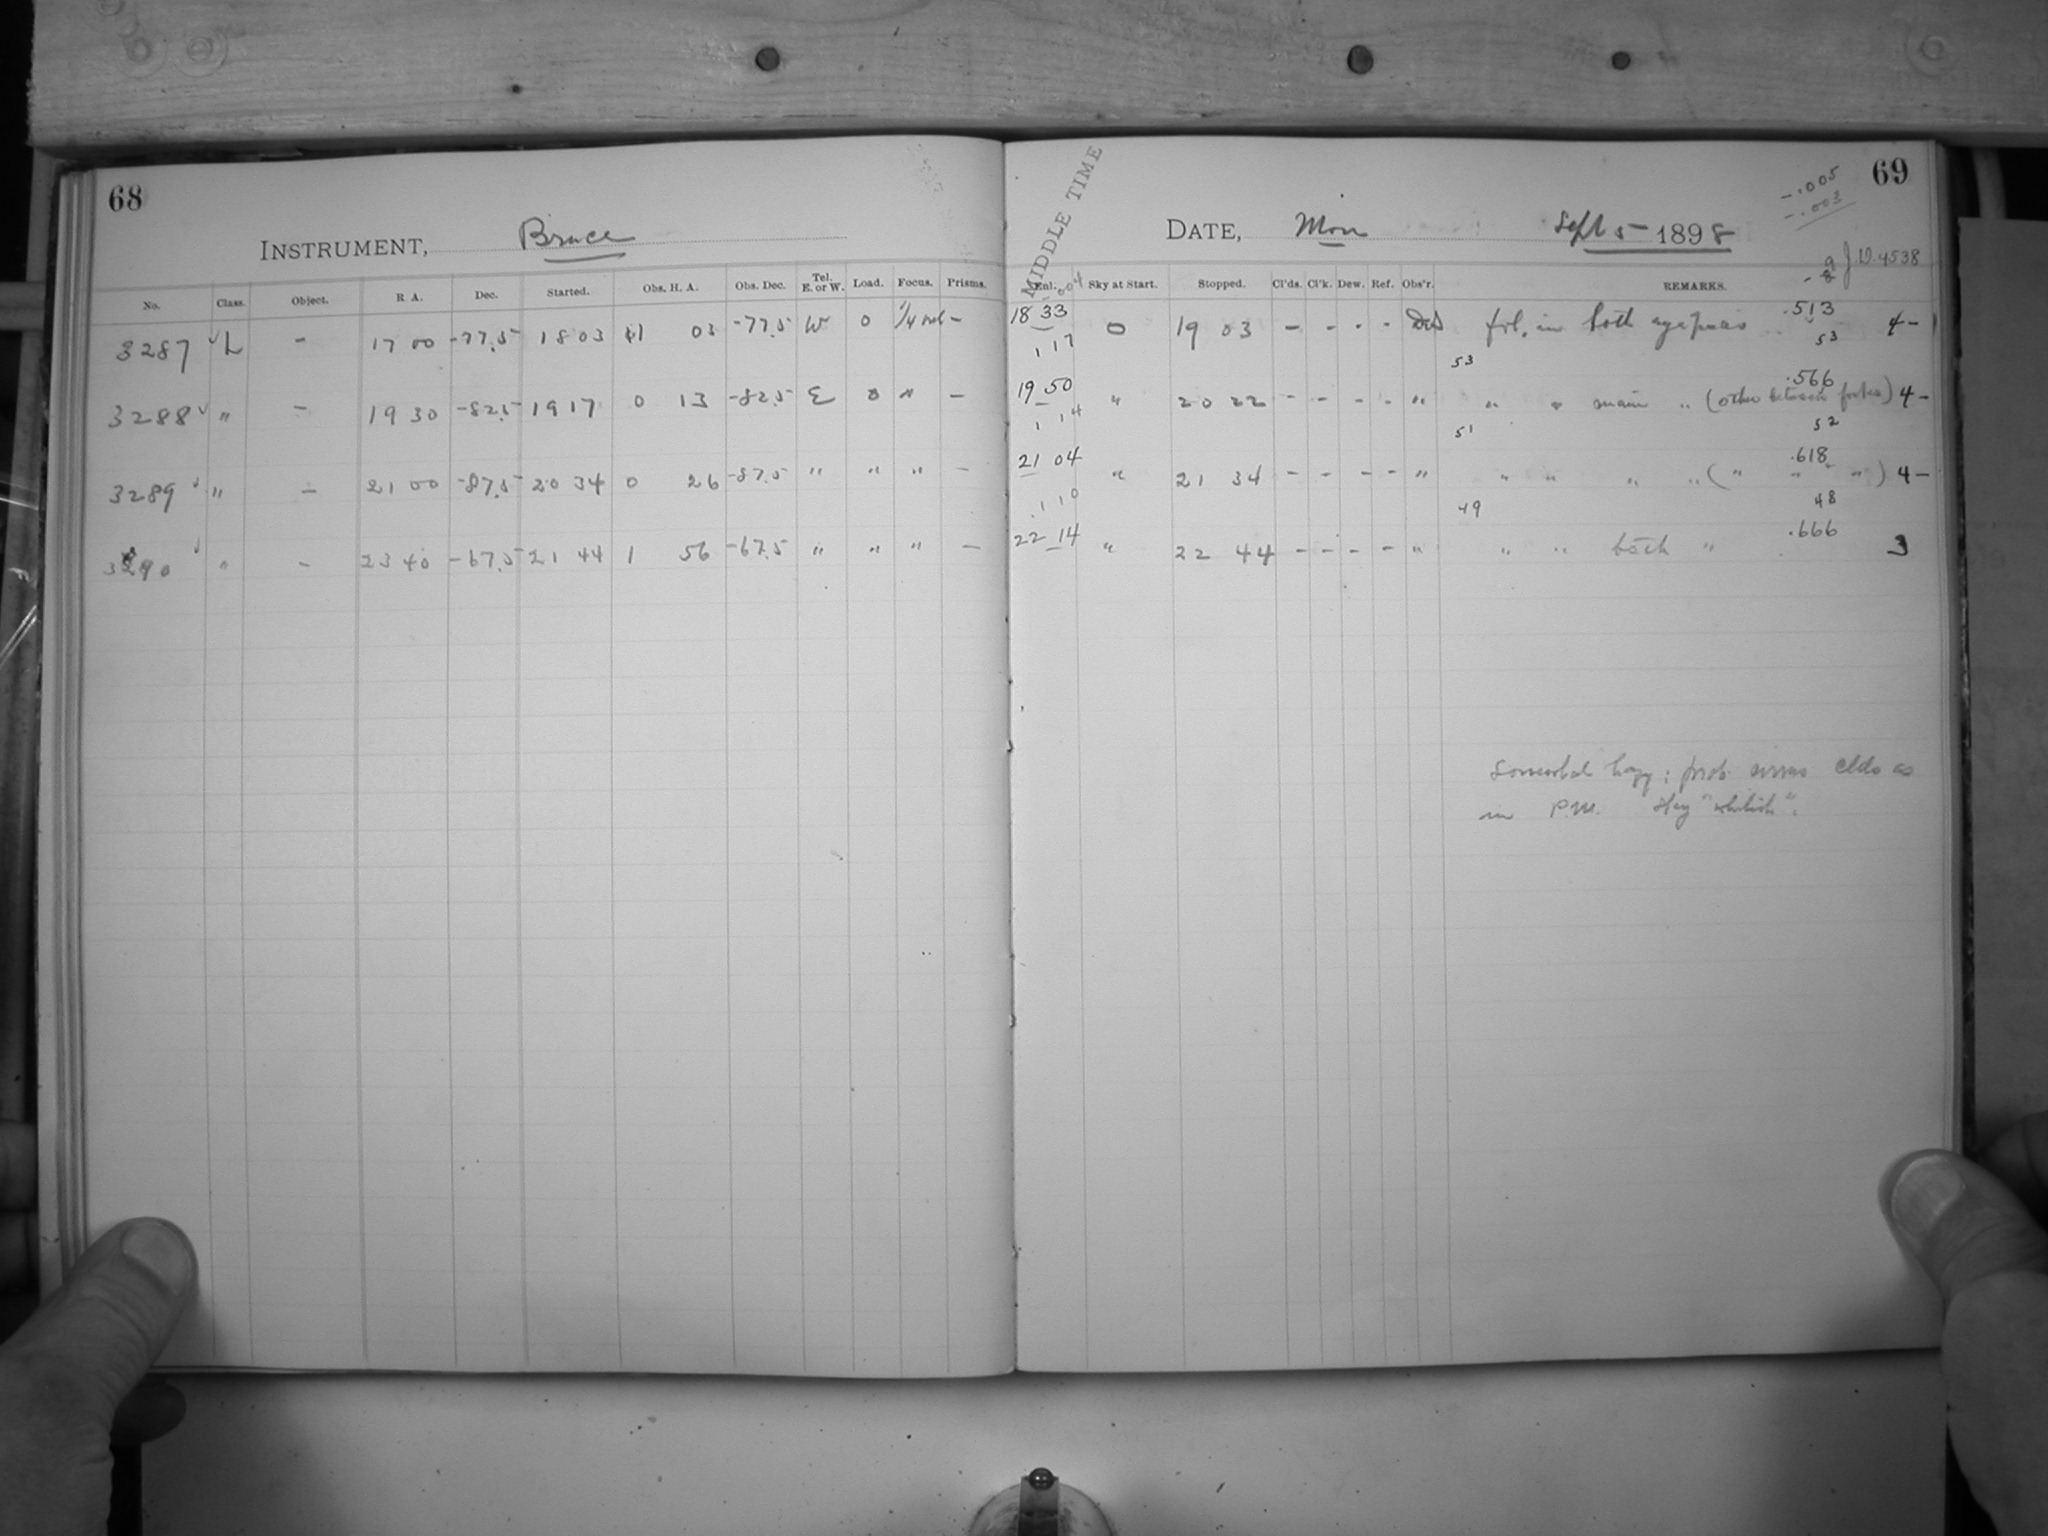 68
INSTRUMENT, Bruce
No. Class. Object. R A. Dec. Started. Obs. H. A. Obs. Dec. Tel. E. or W. Load. Focus. Prisms.
3287 √ L - 17 00 -77.5 18 03 1 03 -77.5 W 0 1/4 - 
3288 √ " - 19 30 -82.5 19 17 0 13 -82.5 E 0 " -
3289 √ " - 21 00 -87.5 20 34 0 26 -87.5 " " " -
3290 √ " - 23 40 -67.5 21 44 1 56 -67.5 " " " -
MIDDLE TIME
69
-.005
-.003
DATE, Mon Sept 5 1898
J.D. 4538
-.004
Enl. Sky at Start. Stopped. Cl'ds. Cl'k. Dew. Ref. Obs'r. REMARKS.
18 33 0 19 03 - - - - fol. in both eyepieces .513 4-
1 17 53 53
19 50 " 20 22 - - - - " " " main " (other between forks) .566 4-
1 14 51 52
21 04 " 21 34 - - - - " " " " " (" " ") .618 4-
1 10 49 48
22 14 " 22 44 - - - - " " " both " .666 3
Somewhat hazy; prob. cirrus clds as
in P.M. sky "whitish".